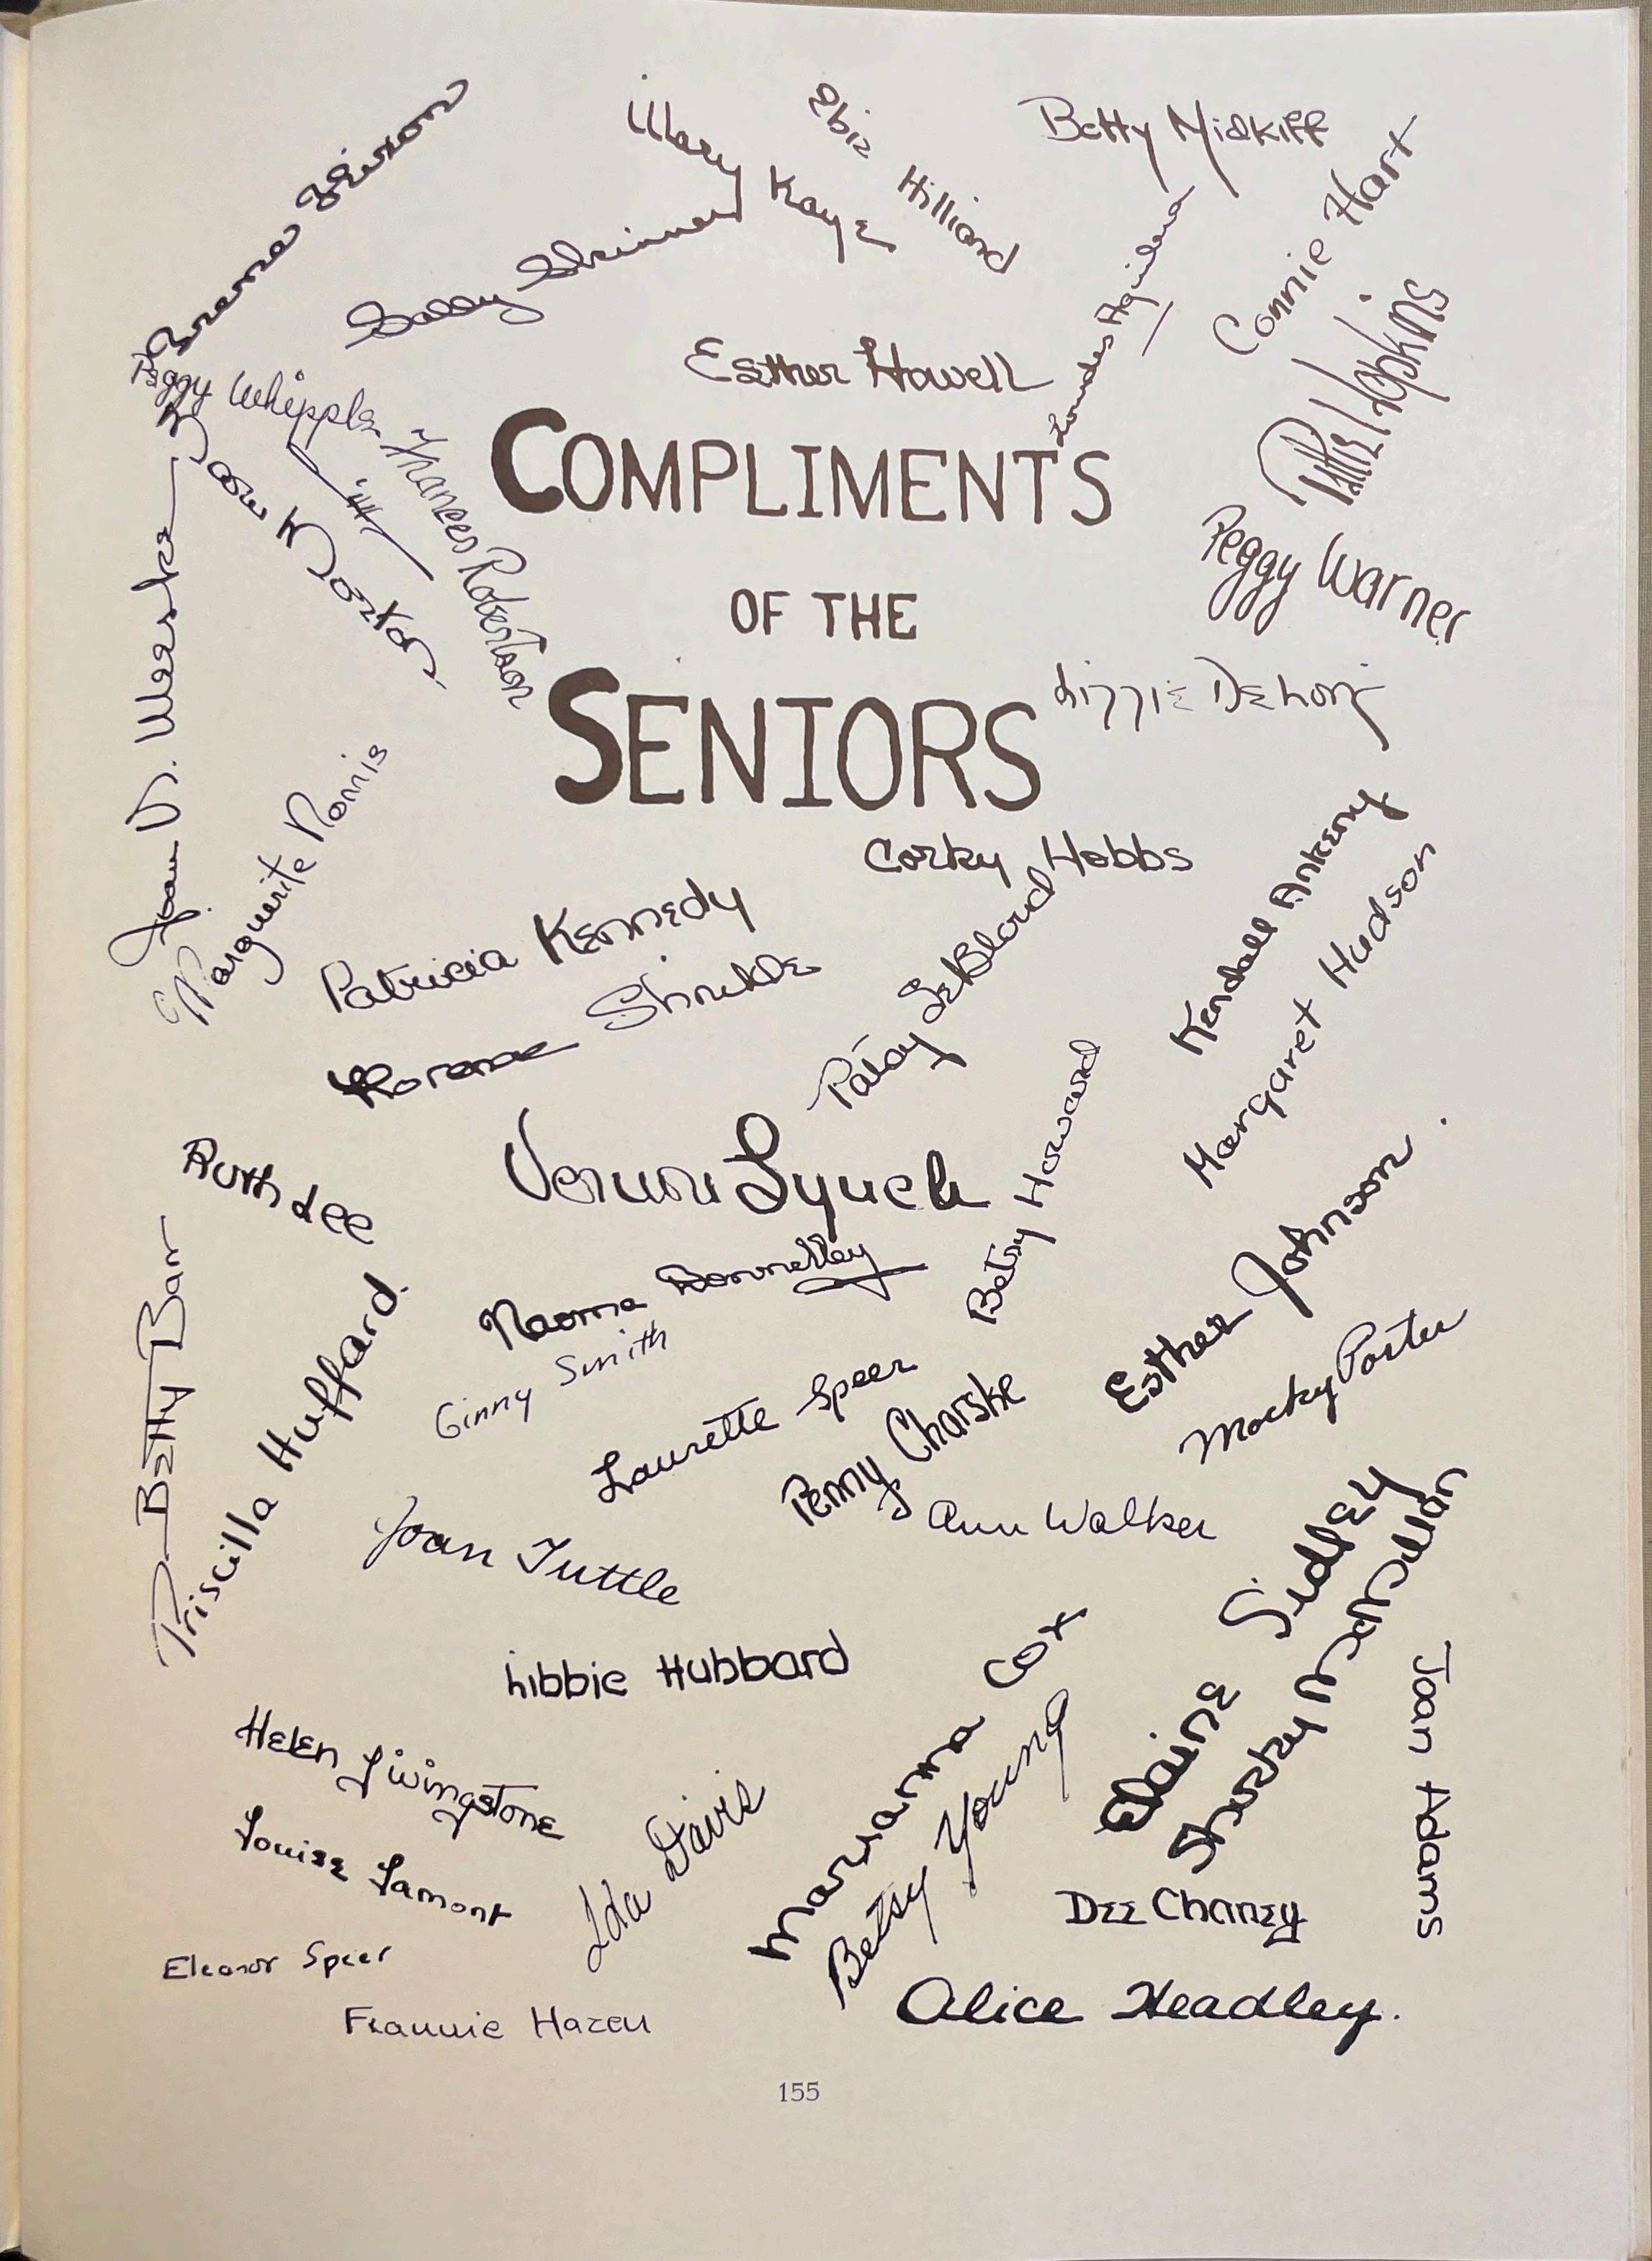 Mary Kaye
Abie Hilliard
Betty Midkiff
Connie Hart
Sally Skinner
Lourdes Aguilera
Esther Howell
Phiel Hopkins
Peggy Whippler
Frances Robertson
COMPLIMENTS
OF THE
SENIORS
Peggy Warner
Lizzie DeLong
Joan V. Weeske
Marguerite Norris
Corky Hobbs
Kendall Ankeny
Patricia Kennedy
Patsy LeBlond
Margaret Hudson
Florence
Ruth Lee
Vernon Lynch
Betsy Howard
Esther Johnson.
Naoma Donnelley
Betty Barr
Priscilla Huffard.
Ginny Smith
Laurette Speer
Penny Chorske
Macky Porter
Joan Tuttle
Ann Walker
Elaine Sidley
McMillan
Libbie Hubbard
Marianna Cox
Betsy Young
Joan Adams
Helen Livingstone
Louise Lamont
Ida Davis
Dee Chaney
Eleanor Speer
Alice Headley.
Frannie Hazen
155